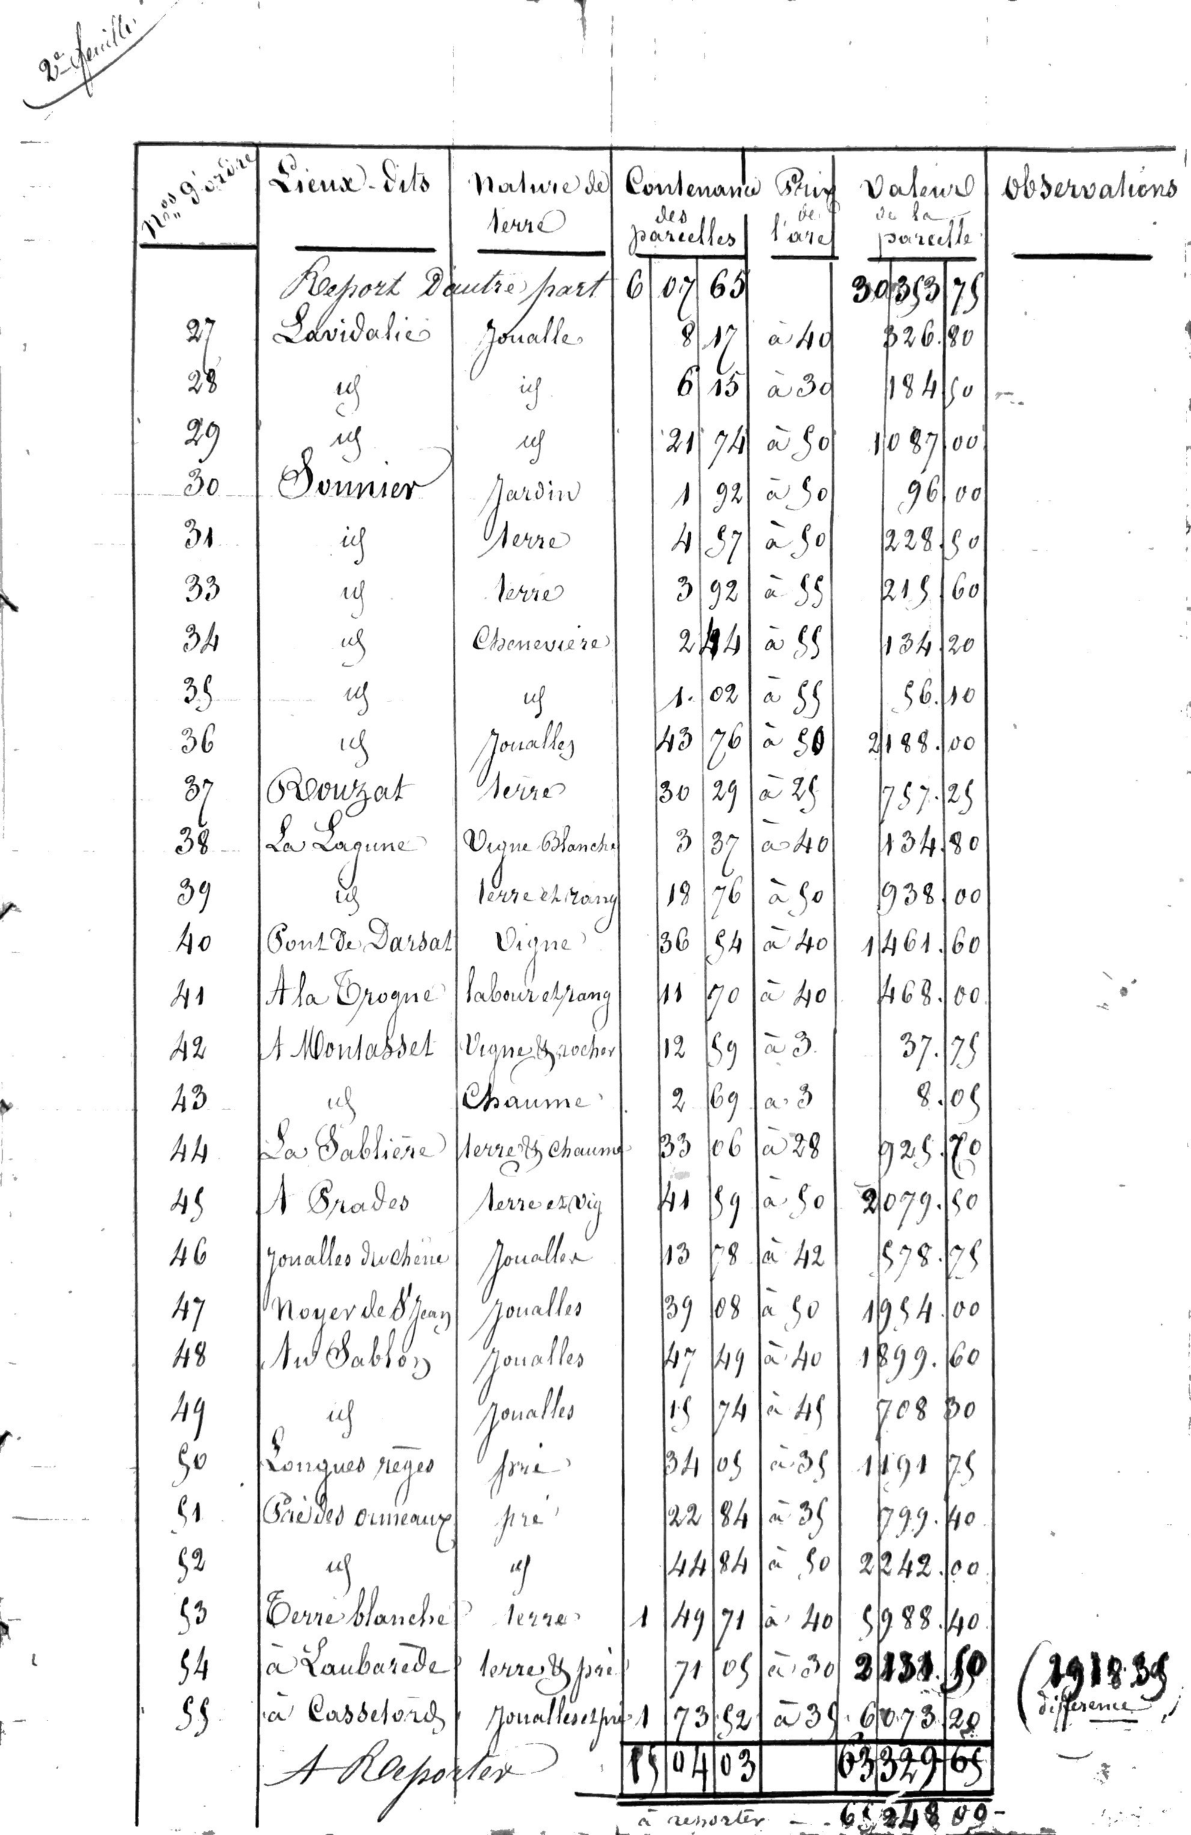 2e feuille
Nos d'ordre Lieux-dits Nature de terre Contenance des parcelles Prix de l'are Valeur de la parcelle Observations
Report D'autre part 6 07 65 30353 75
27 Lavidalie Joualle 8 17 à 40 326.80
28 id id 6 15 à 30 184 50
29 id id 21 74 à 50 1087 00
30 Sounier Jardin 1 92 à 50 96 00
31 id terre 4 57 à 50 228.50
33 id terre 3 92 à 55 215 60
34 id Chenevière 2 44 à 55 134.20
35 id id 1. 02 à 55 56.10
36 id Joualles 43 76 à 50 2188.00
37 Rouzat terre 30 29 à 25 757.25
38 La Lagune Vigne Blanche 3 37 à 40 134.80
39 id terre et rang 18 76 à 50 938.00
40 Pont de Darsat Vigne 36 54 à 40 1461.60
41 A la Trogne labour et rang 11 70 à 40 468.00
42 A Montasset Vigne & rocher 12 59 à 3 37.75
43 id Chaume 2 69 à 3 8.05
44 La Sablière terre & chaume 33 06 à 28 925.70
45 A Prades terre et vig 41 59 à 50 2079.50
46 Joualles du chêne Joualles 13 78 à 42 578.75
47 Noyer de St Jean Joualles 39 08 à 50 1954.00
48 Au Sablon Joualles 47 49 à 40 1899.60
49 id Joualles 15 74 à 45 708 30
50 Longues règes pré 34 05 à 35 1191 75
51 Pré des ormeaux pré 22 84 à 35 799.40
52 id id 44 84 à 50 2242.00
53 Terre blanche terre 1 49 71 à 40 5988.40
54 à Laubarède terre & pré 71 05 à 30 2131.50 (1918.35
55 à Cassetord Joualles et pré 1 73 52 à 35 6073.20 difference)
A Reporter 15 04 03 63329 65
à reporter 65248 00